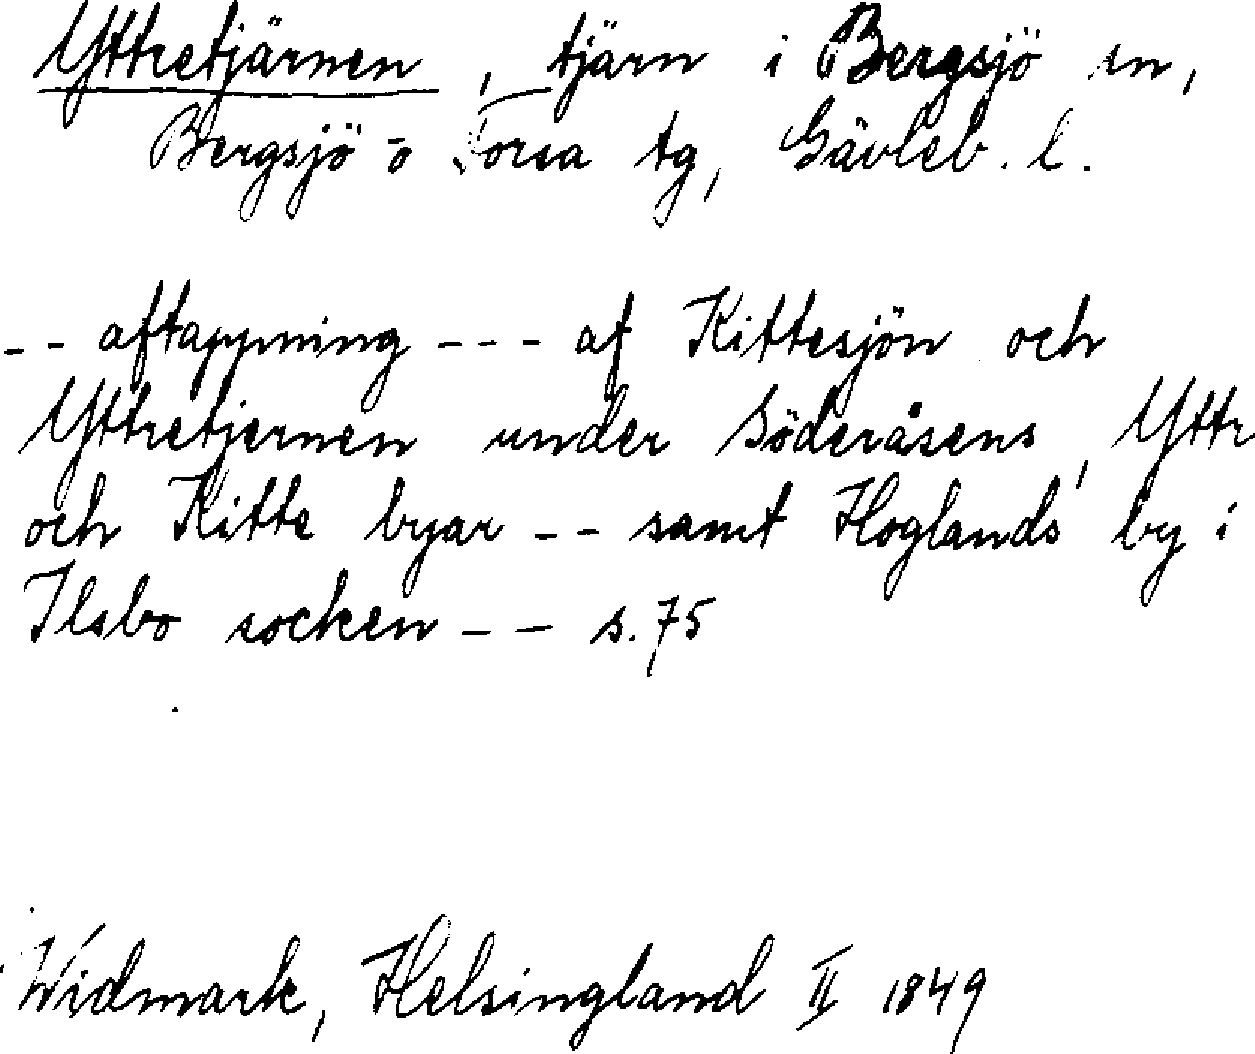 Yttretjärnen, tjärn i Bergsjö sn,
Bergsjö o Forsa tg, Gävleb. l.
-- aftappning --- af Kittesjön och
Yttretjernen under Söderåsens, Yttr
och Kitte byar -- samt Hoglands by i
Ilsbo socken -- s. 75
Widmark, Helsingland II 1849